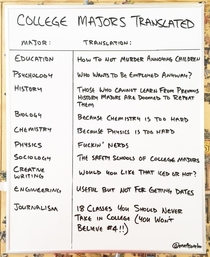 COLLEGE MAJORS TRANSLATED
MAJOR: TRANSLATION:
EDUCATION HOW TO NOT MURDER ANNOYING CHILDREN
PSYCHOLOGY WHO WANTS TO BE EMPLOYED ANYWAY?
HISTORY THOSE WHO CANNOT LEARN FROM PREVIOUS
HISTORY MAJORS ARE DOOMED TO REPEAT
THEM
BIOLOGY BECAUSE CHEMISTRY IS TOO HARD
CHEMISTRY BECAUSE PHYSICS IS TOO HARD
PHYSICS FUCKIN' NERDS
SOCIOLOGY THE SAFETY SCHOOLS OF COLLEGE MAJORS
CREATIVE WOULD YOU LIKE THAT ICED OR HOT?
WRITING
ENGINEERING USEFUL BUT NOT FOR GETTING DATES
JOURNALISM 18 CLASSES YOU SHOULD NEVER
TAKE IN COLLEGE (YOU WON'T
BELIEVE #4!!)